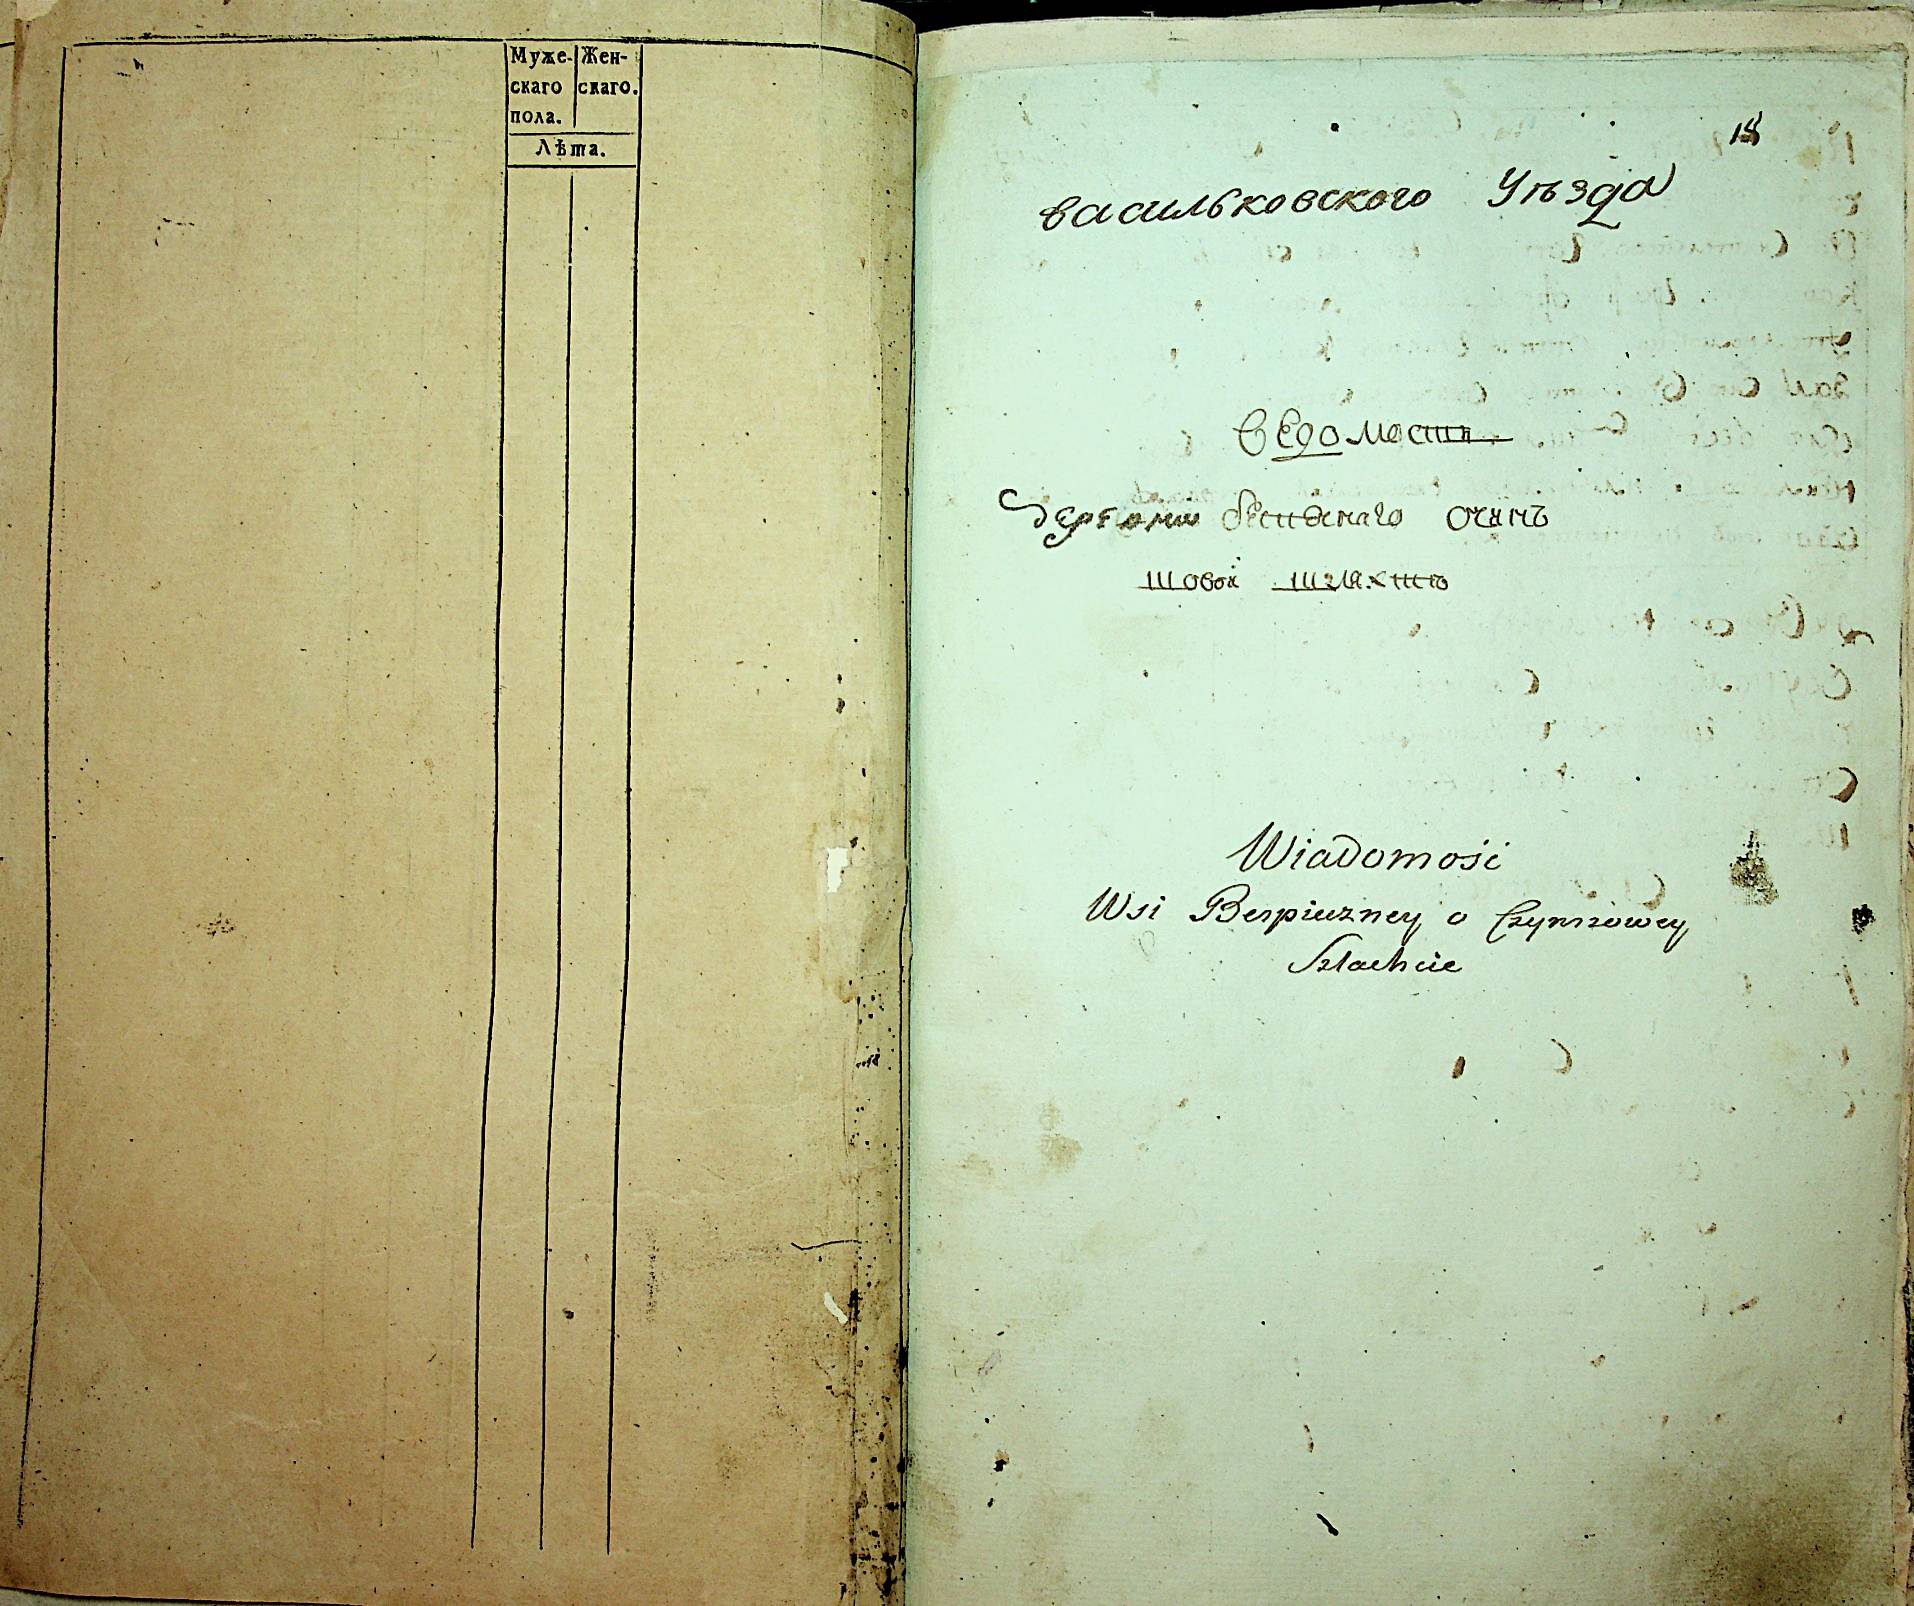 Муже- Жен-
скаго скаго.
пола.
Лѣта.
18
васильковского Уѣзда
Ведомость
деревни о чин
шовой шляхте
Wiadomość
Wsi Bespieczney o Czynszowey
Szlachcie